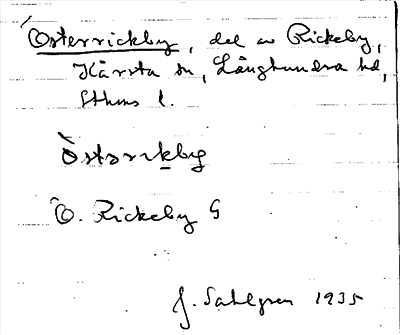 Österrickeby, del av Rickeby,
Kårsta sn, Långhundra hd,
Sthms l.
Östərıkby
Ö. Rickeby G
J. Sahlgren 1935